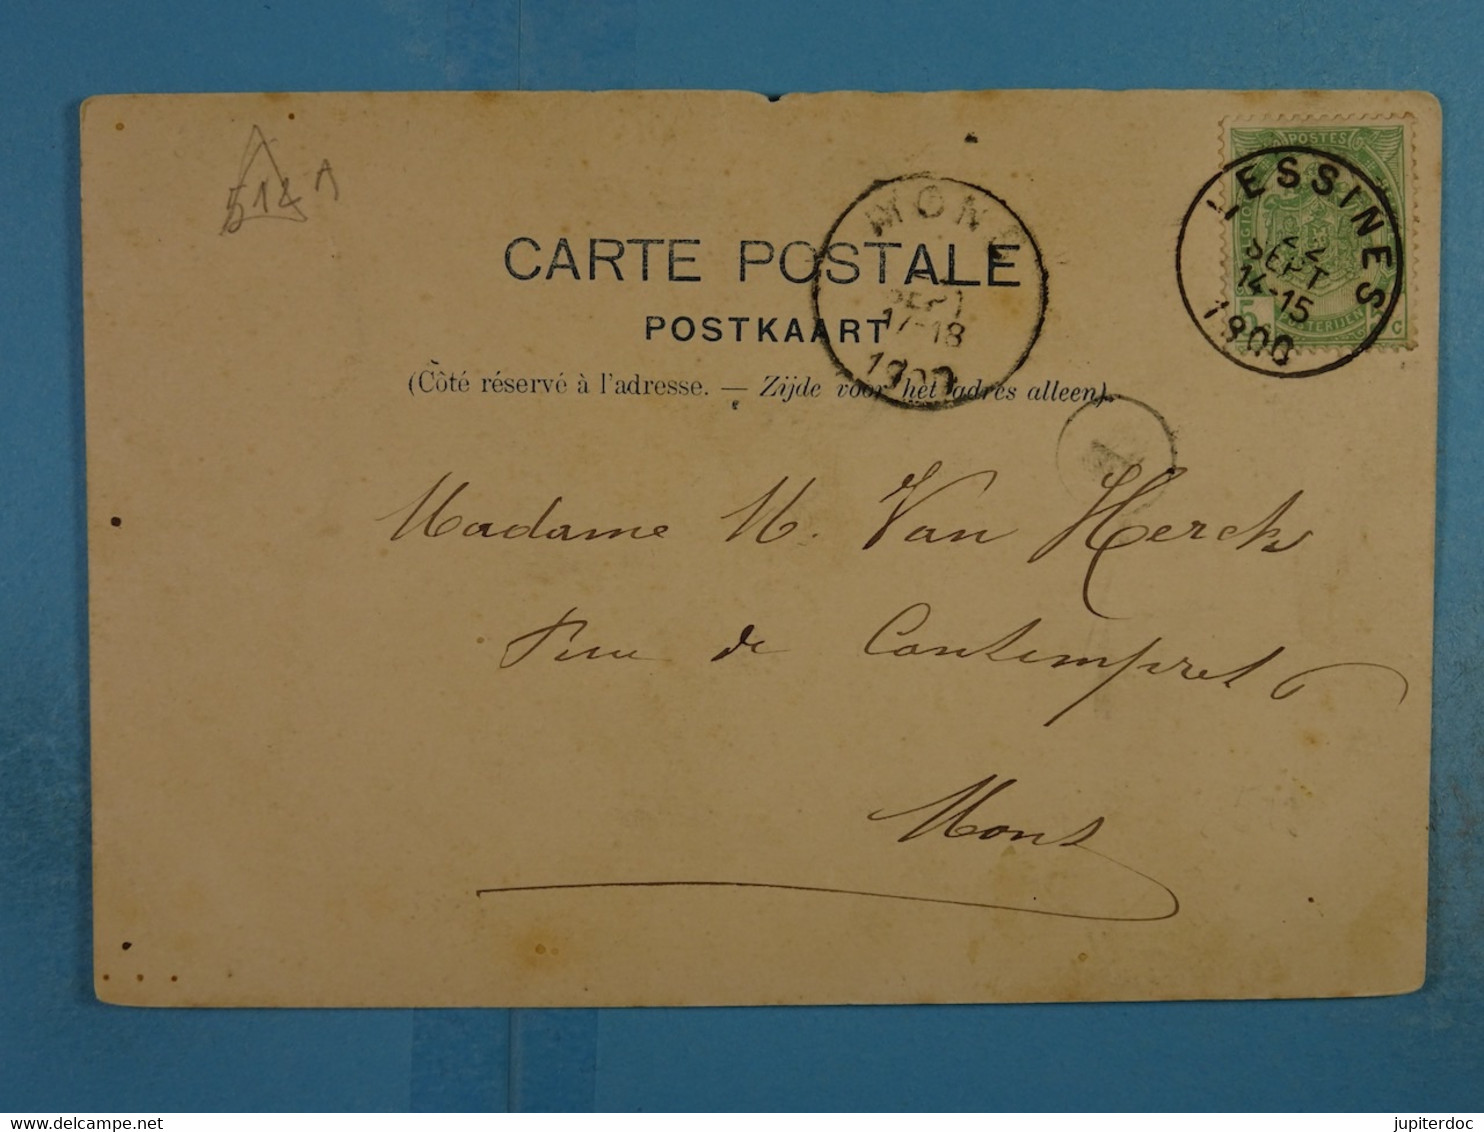 514 A
CARTE POSTALE
POSTKAART
(Côté réservé à l'adresse. — Zijde voor het adres alleen).
MONS
SEPT
17-18
1900
POSTES
LESSINES
22
SEPT
14-15
1900
5 C
Madame M. Van Herck
Rue de Cantimpret
Mons
jupiterdoc
www.delcampe.net